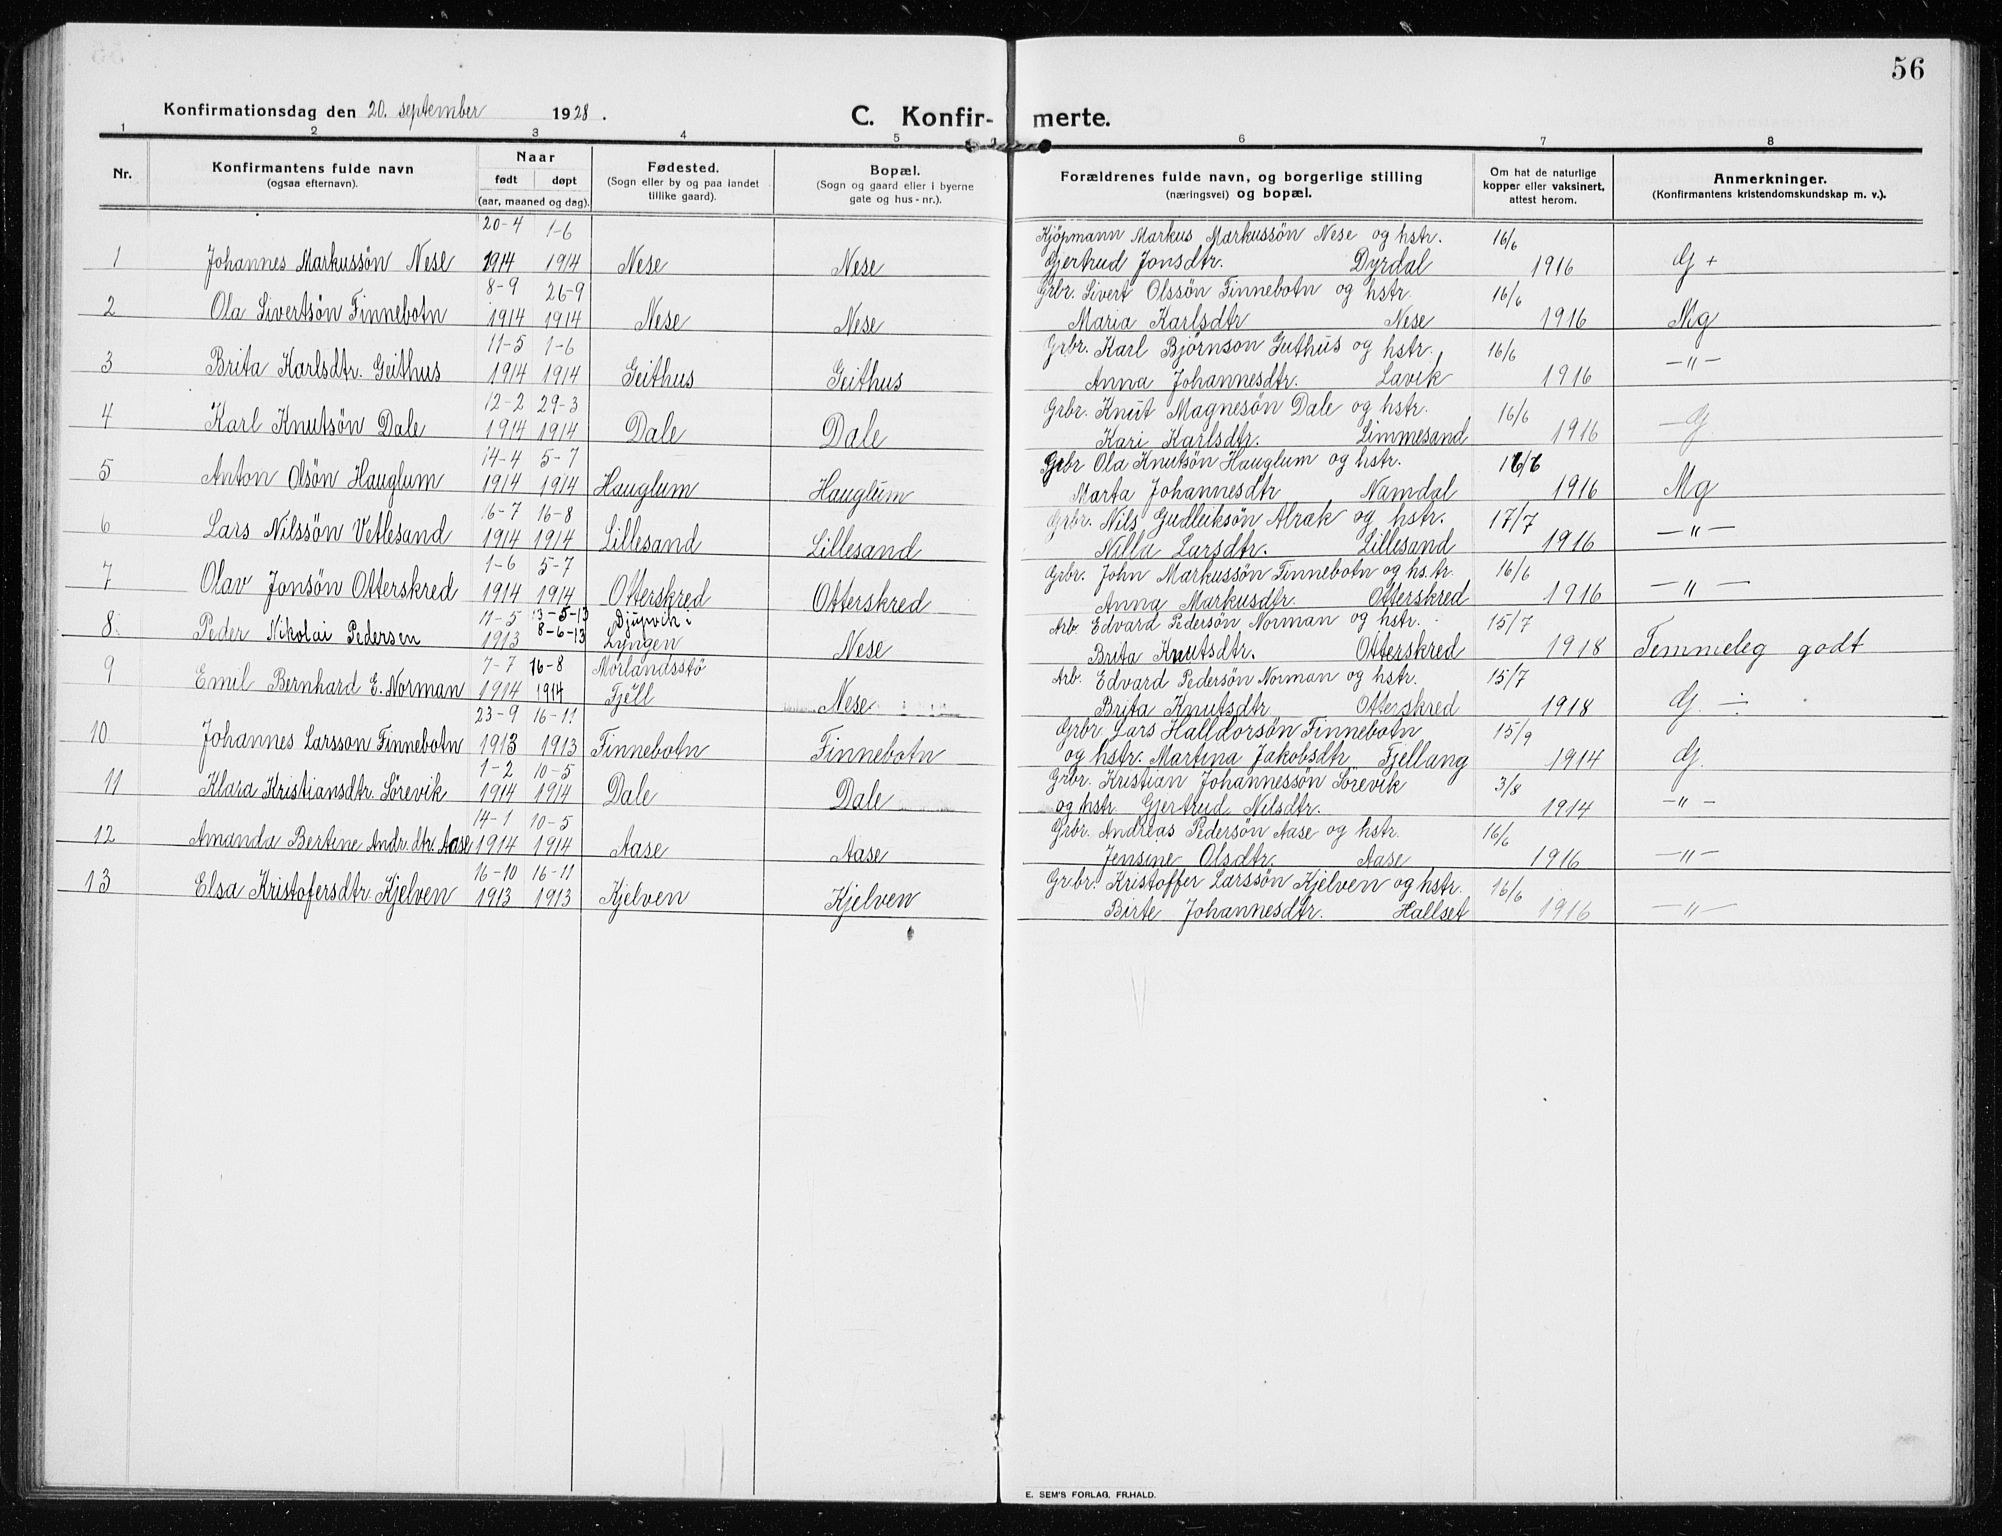 56
Konfirmationsdag den 20. september 1928.
C. Konfir- merte.
1 2 3 4 5 6 7 8
Nr. Konfirmantens fulde navn (ogsaa efternavn). Naar født døpt (aar, maaned og dag). Fødested. (Sogn eller by og paa landet tillike gaard). Bopæl. (Sogn og gaard eller i byerne gate og hus-nr.). Forældrenes fulde navn, og borgerlige stilling (næringsvei) og bopæl. Om hat de naturlige kopper eller vaksinert, attest herom. Anmerkninger. (Konfirmantens kristendomskundskap m. v.).
20-4 1-6 Kjöpmann Markus Markussön Nese og hstr. 16/6
1 Johannes Markussön Nese 1914 1914 Nese Nese Gjertrud Jonsdtr. Dyrdal 1916 G +
8-9 26-9 Grbr. Sivert Olssön Finnebotn og hstr. 16/6
2 Ola Sivertsön Finnebotn 1914 1914 Nese Nese Maria Karlsdtr Nese 1916 Mg
11-5 1-6 Grbr. Karl Björnson Geithus og hstr. 16/6
3 Brita Karlsdtr. Geithus 1914 1914 Geithus Geithus Anna Johannesdtr. Lavik 1916 —"—
12-2 29-3 Grbr. Knut Magnesön Dale og hstr. 16/6
4 Karl Knutsön Dale 1914 1914 Dale Dale Kari Karlsdtr. Limmesand 1916 G.
14-4 5-7 Grbr Ola Knutsön Hauglum og hstr. 16/6
5 Anton Olsön Hauglum 1914 1914 Hauglum Hauglum Marta Johannesdtr Namdal 1916 Mg
16-7 16-8 Grbr. Nils Gudleiksön Alrak og hstr. 17/7
6 Lars Nilssön Vetlesand 1914 1914 Lillesand Lillesand Nilla Larsdtr. Lillesand 1916 —"—
1-6 5-7 Grbr. John Markussön Finnebotn og hs.tr. 16/6
7 Olav Jonsön Otterskred 1914 1914 Otterskred Otterskred Anna Markusdtr. Otterskred 1916 —"—
17-5 13-5-13 Djupvik i Arb. Edvard Pedersön Norman og hstr. 15/7
8. Peder Nikolai Pedersen 1913 8-6-13 Lyngen Nese Brita Knutsdtr. Otterskred 1918 Temmeleg godt
7-7 16-8 Morlandsstö Arb. Edvard Pedersön Norman og hstr. 15/7
9 Emil Bernhard E. Norman 1914 1914 Fjell Nese Brita Knutsdtr Otterskred 1918 G. ÷
23-9 16-11 Grbr Lars Halldorsön Finnebotn 15/9
10 Johannes Larsson Finnebotn 1913 1913 Finnebotn Finnebotn og hstr. Martina Jakobsdtr Fjellang 1914 G.
1-2 10-5 Grbr. Kristian Johannessön Sörevik 3/8
11 Klara Kristiansdtr. Sörevik 1914 1914 Dale Dale og hstr Gjertrud Nilsdtr. 1914 —"—
14-1 10-5 Grbr. Andreas Pedersön Aase og hstr. 16/6
12 Amanda Bertine Andr.dtr. Aase 1914 1914 Aase Aase Jensine Olsdtr. Aase 1916 —"—
16-10 16-11 Grbr. Kristoffer Larssön Kjelven og hstr. 16/6
13 Elsa Kristofersdtr Kjelven 1913 1913 Kjelven Kjelven Birte Johannesdtr. Hallset 1916 —"—
E. SEM'S FORLAG, FR.HALD.